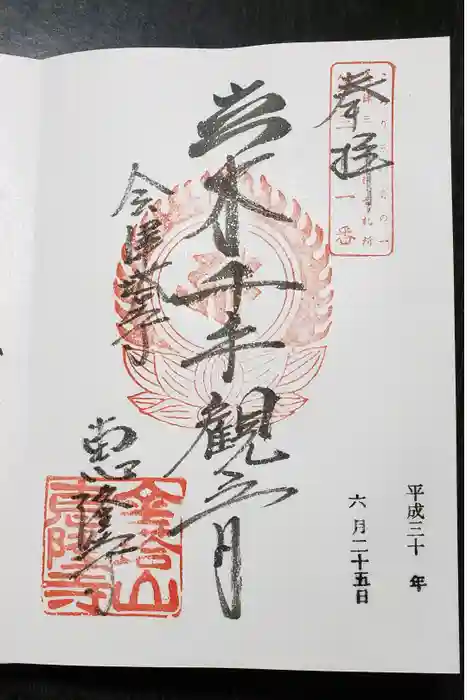 奉拝
三十一番
立木千手観音
会津坂下
恵隆寺
金塔山
恵隆寺
平成三十年
六月二十五日